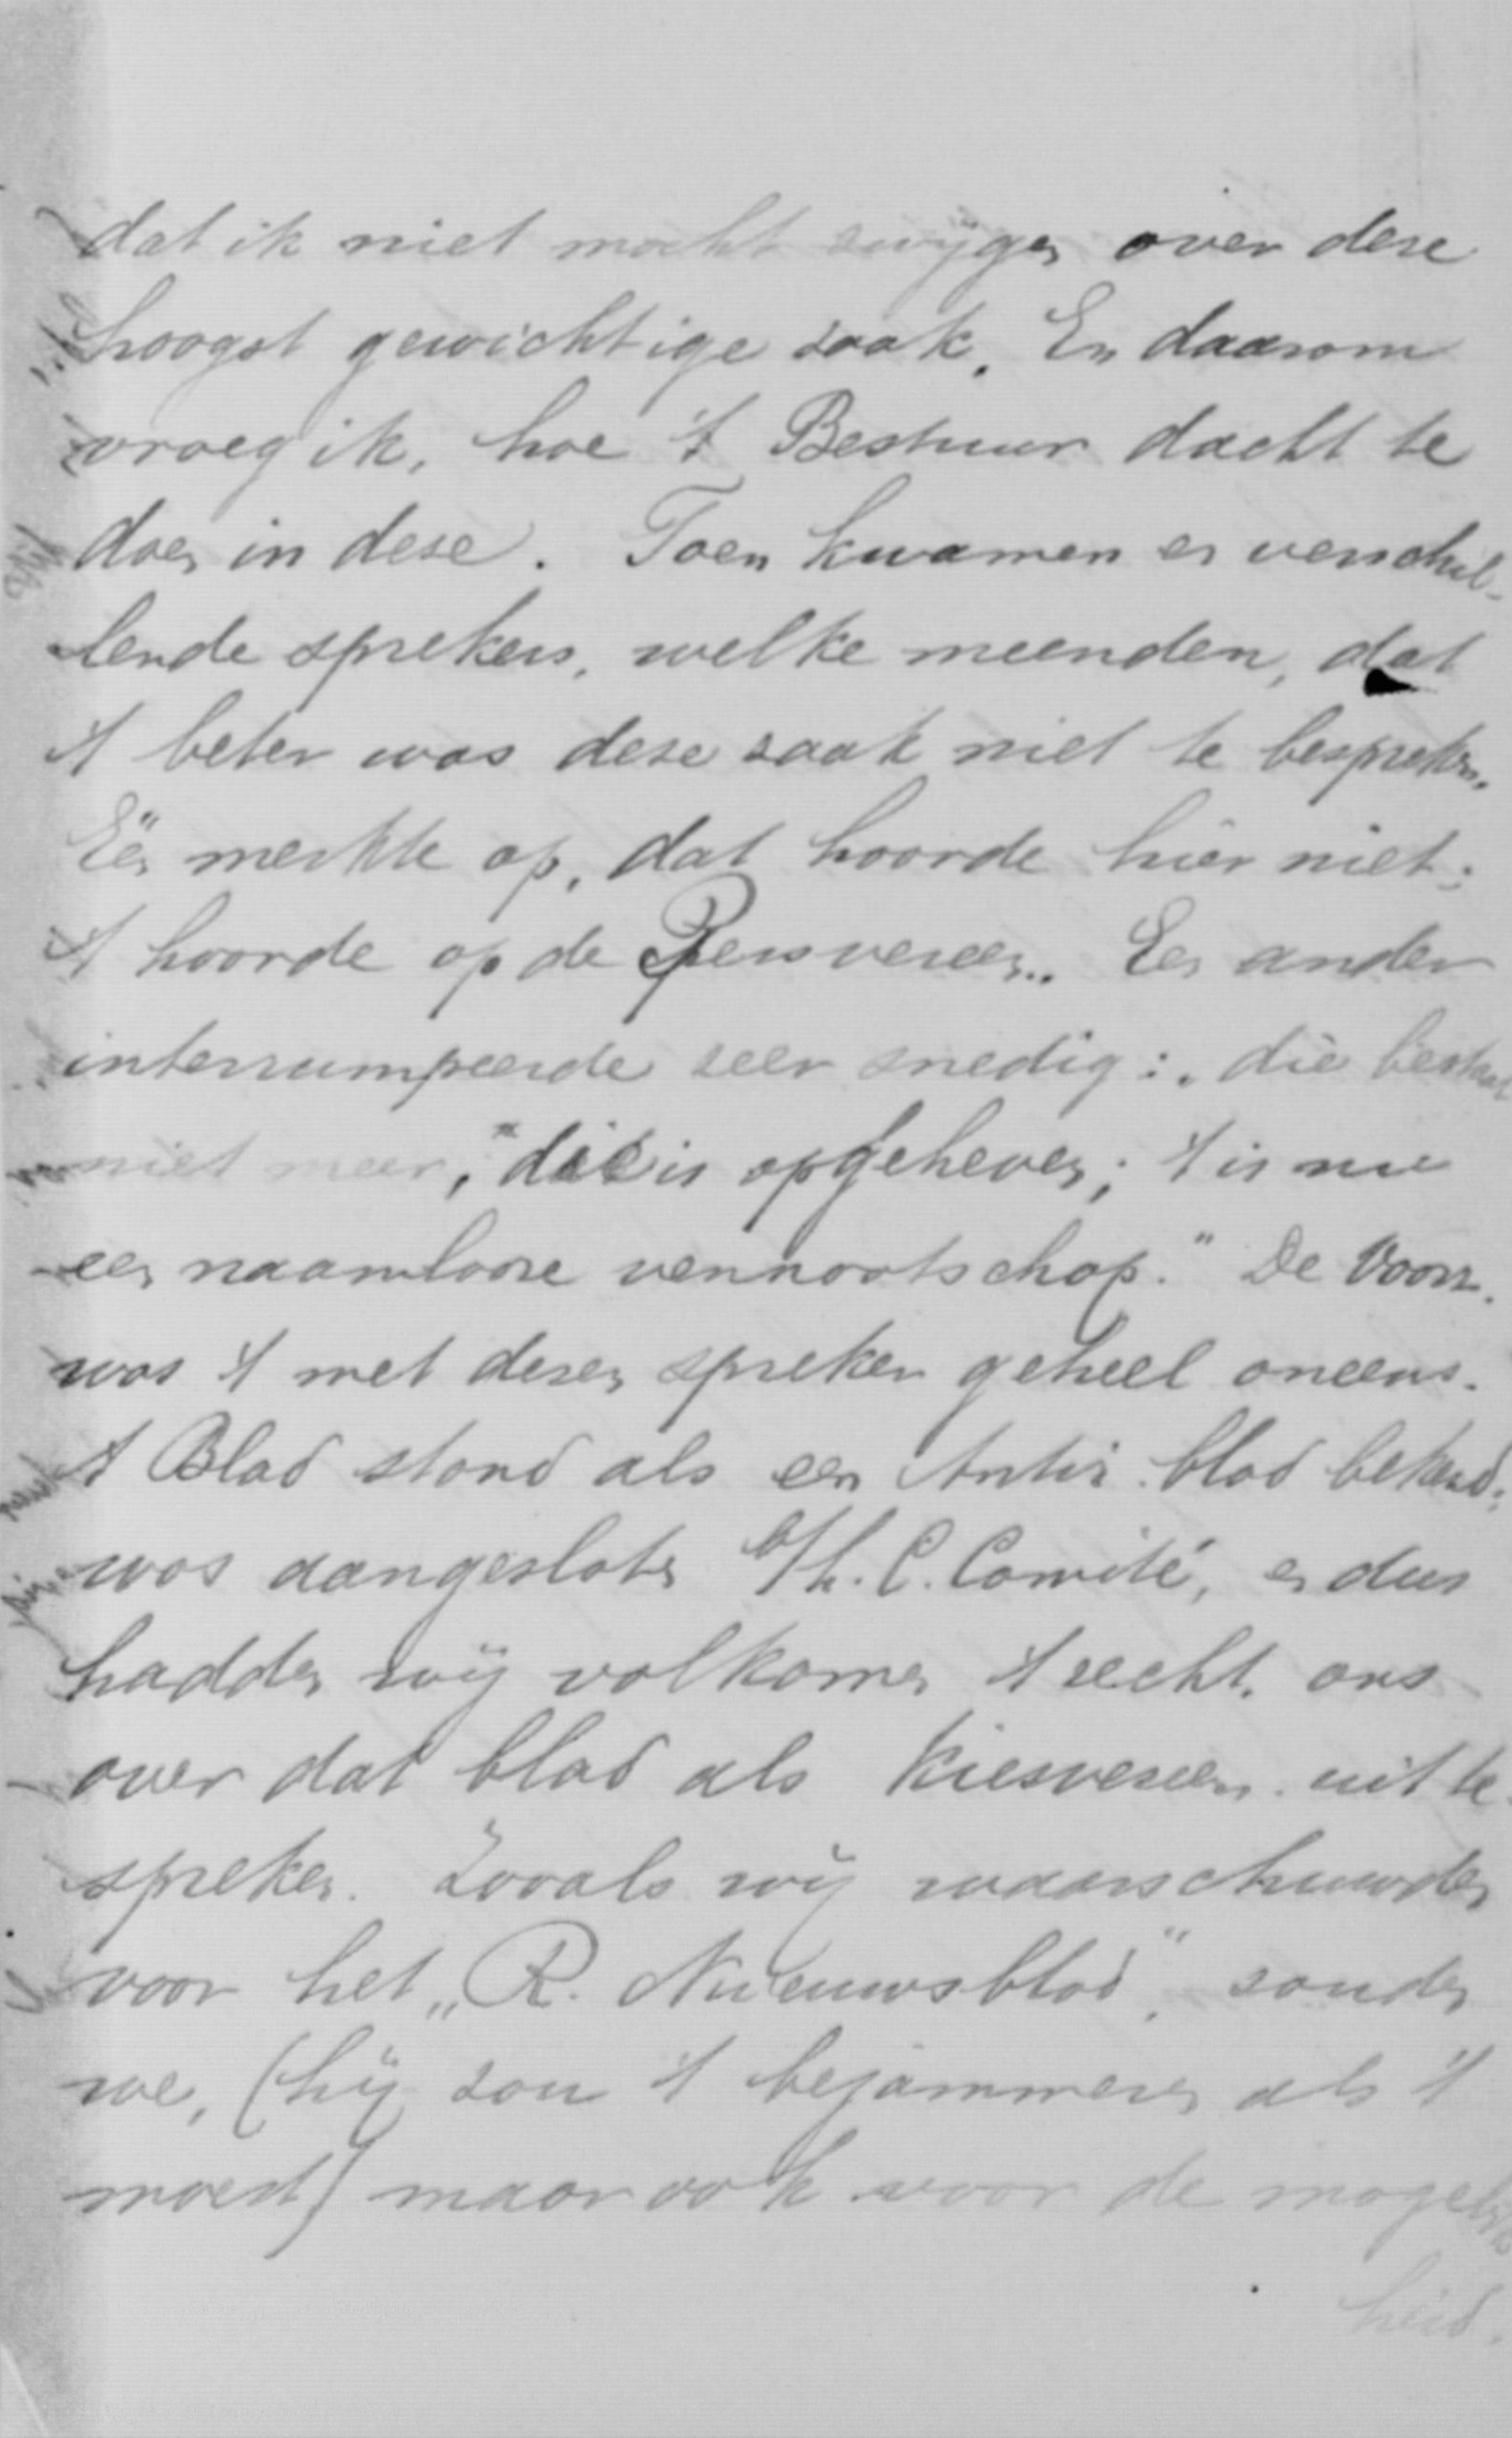 dat ik niet mocht zwijgen over deze
hoogst gewichtige zaak. En daarom
vroeg ik, hoe 't Bestuur dacht te
doen in deze. Toen kwamen er verschil-
lende sprekers, welke meenden, dat
't beter was deze zaak niet te bespreken.
Eén merkte op, dat hoorde hier niet;
't hoorde op de Persvereen.. Een ander
interrumpeerde zeer snedig: „die bestaat
niet meer, die is opgeheven; 't is nu
een naamlooze vennootschap." De Voorz.
was 't met dezen spreker geheel oneens.
't Blad stond als een Antir. blad bekend;
was aangesloten b/h. C. Comité, en dus
hadden wij volkomen 't recht, ons
over dat blad als Kiesvereen. uit te
spreken. Zooals wij waarschuwden
voor het „R. Nieuwsblad", zouden
we, (hij zou 't bejammeren als 't
moest) maar ook voor de mogelijk
heid.